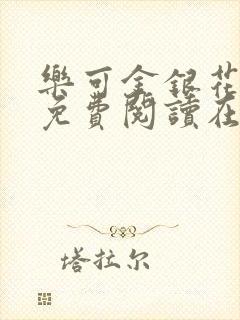 樂可金銀花
免費閱讀在
塔拉尔